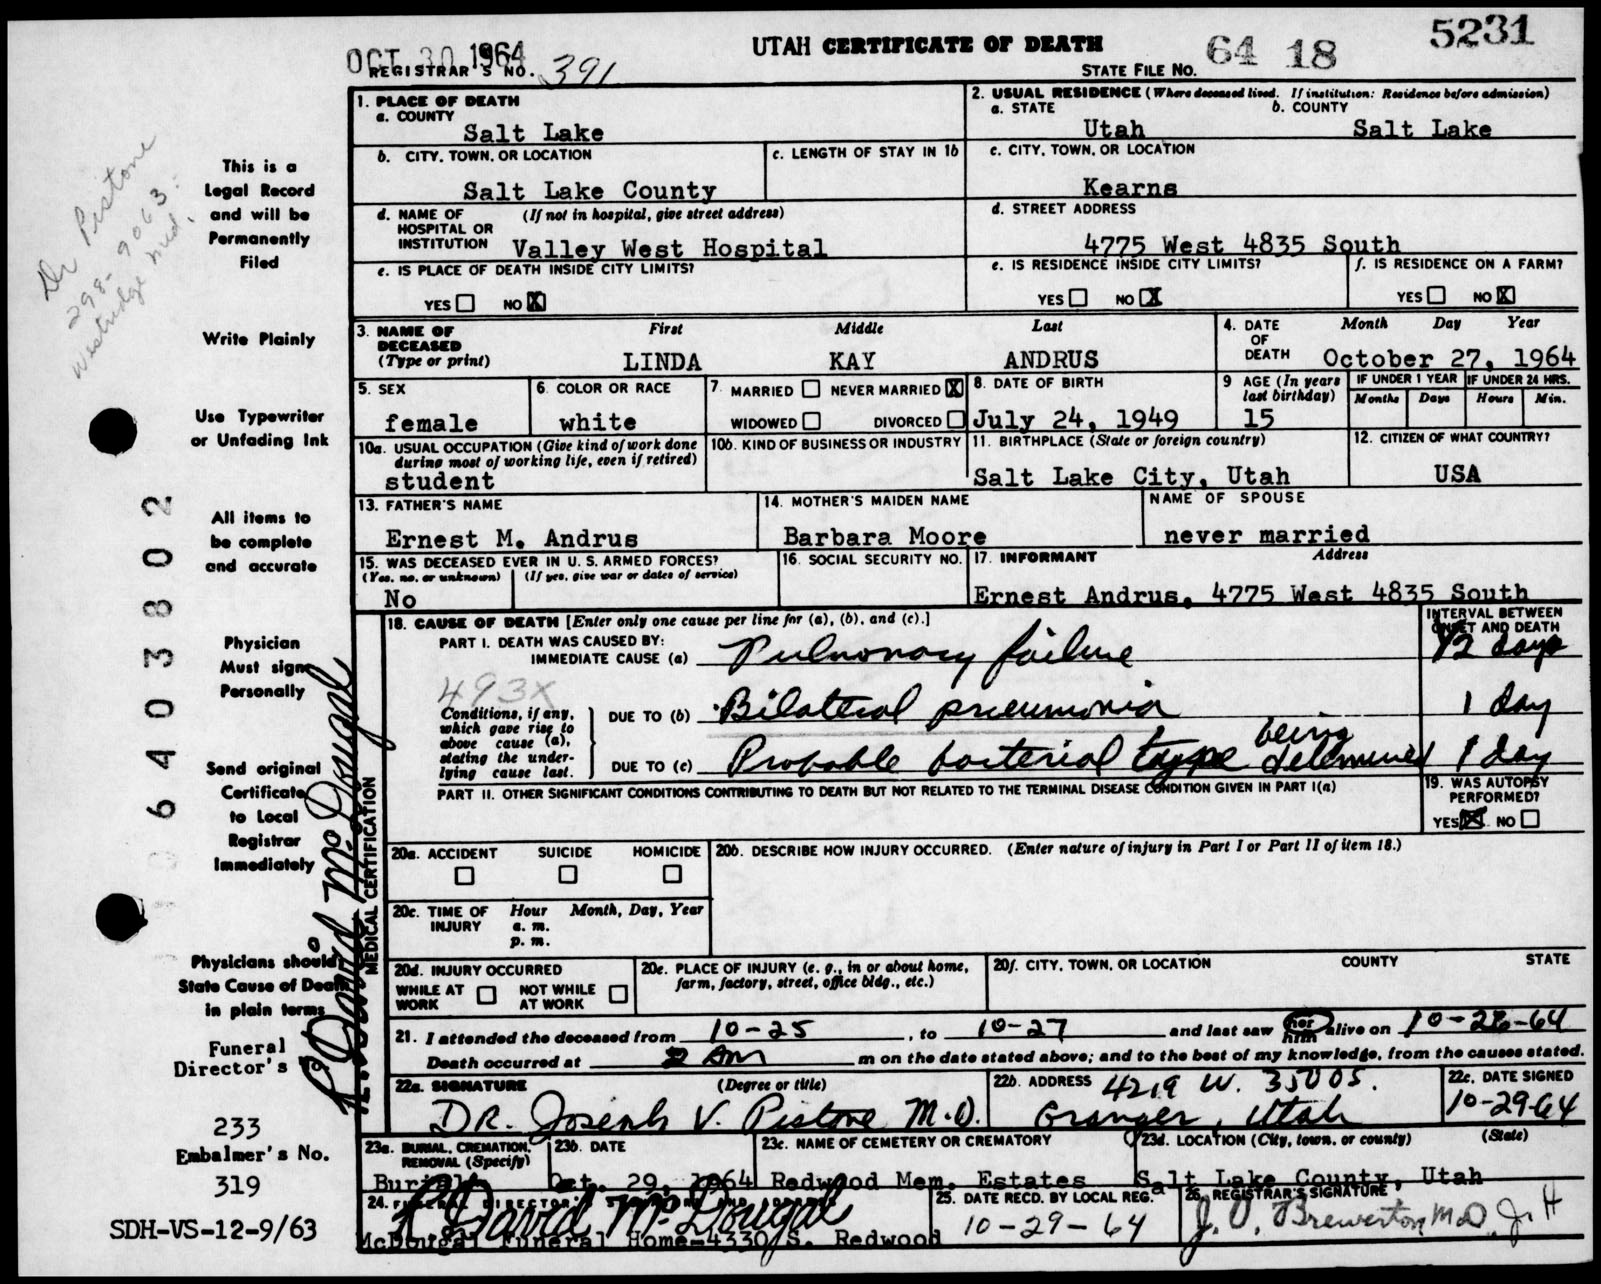 OCT 30 1964
REGISTRAR'S NO. 391
UTAH CERTIFICATE OF DEATH
STATE FILE NO. 64 18 5231
1. PLACE OF DEATH
a. COUNTY
Salt Lake
2. USUAL RESIDENCE (Where deceased lived. If institution: Residence before admission)
a. STATE b. COUNTY
Utah Salt Lake
b. CITY, TOWN, OR LOCATION
Salt Lake County
c. LENGTH OF STAY IN 1b
c. CITY, TOWN, OR LOCATION
Kearns
d. NAME OF HOSPITAL OR INSTITUTION (If not in hospital, give street address)
Valley West Hospital
d. STREET ADDRESS
4775 West 4835 South
e. IS PLACE OF DEATH INSIDE CITY LIMITS?
YES NO X
e. IS RESIDENCE INSIDE CITY LIMITS?
YES NO X
f. IS RESIDENCE ON A FARM?
YES NO X
3. NAME OF DECEASED (Type or print)
First Middle Last
LINDA KAY ANDRUS
4. DATE OF DEATH Month Day Year
October 27, 1964
5. SEX
female
6. COLOR OR RACE
white
7. MARRIED NEVER MARRIED X
WIDOWED DIVORCED
8. DATE OF BIRTH
July 24, 1949
9 AGE (In years last birthday)
15
IF UNDER 1 YEAR IF UNDER 24 HRS.
Months Days Hours Min.
10a. USUAL OCCUPATION (Give kind of work done during most of working life, even if retired)
student
10b. KIND OF BUSINESS OR INDUSTRY
11. BIRTHPLACE (State or foreign country)
Salt Lake City, Utah
12. CITIZEN OF WHAT COUNTRY?
USA
13. FATHER'S NAME
Ernest M. Andrus
14. MOTHER'S MAIDEN NAME
Barbara Moore
NAME OF SPOUSE
never married
15. WAS DECEASED EVER IN U. S. ARMED FORCES?
(Yes, no, or unknown) (If yes, give war or dates of service)
No
16. SOCIAL SECURITY NO.
17. INFORMANT Address
Ernest Andrus, 4775 West 4835 South
18. CAUSE OF DEATH [Enter only one cause per line for (a), (b), and (c).]
INTERVAL BETWEEN ONSET AND DEATH
PART I. DEATH WAS CAUSED BY:
IMMEDIATE CAUSE (a) Pulmonary failure 1/2 days
493X
Conditions, if any, which gave rise to above cause (a), stating the underlying cause last.
DUE TO (b) Bilateral pneumonia 1 day
DUE TO (c) Probable bacterial type being determined 1 day
PART II. OTHER SIGNIFICANT CONDITIONS CONTRIBUTING TO DEATH BUT NOT RELATED TO THE TERMINAL DISEASE CONDITION GIVEN IN PART I(a)
19. WAS AUTOPSY PERFORMED?
YES X NO
20a. ACCIDENT SUICIDE HOMICIDE
20b. DESCRIBE HOW INJURY OCCURRED. (Enter nature of injury in Part I or Part II of item 18.)
20c. TIME OF INJURY Hour Month, Day, Year
a. m.
p. m.
20d. INJURY OCCURRED
WHILE AT WORK NOT WHILE AT WORK
20e. PLACE OF INJURY (e. g., in or about home, farm, factory, street, office bldg., etc.)
20f. CITY, TOWN, OR LOCATION COUNTY STATE
21. I attended the deceased from 10-25, to 10-27 and last saw her him alive on 10-26-64
Death occurred at 2 AM m on the date stated above; and to the best of my knowledge, from the causes stated.
22a. SIGNATURE (Degree or title)
DR. Joseph V. Pistone M.D.
22b. ADDRESS 4219 W. 3500 S.
Granger, Utah
22c. DATE SIGNED
10-29-64
23a. BURIAL, CREMATION, REMOVAL (Specify)
Burial
23b. DATE
Oct. 29, 1964
23c. NAME OF CEMETERY OR CREMATORY
Redwood Mem. Estates
23d. LOCATION (City, town, or county) (State)
Salt Lake County, Utah
24. FUNERAL DIRECTOR'S SIGNATURE AND ADDRESS
R. David McDougal
McDougal Funeral Home-4330 S. Redwood
25. DATE RECD. BY LOCAL REG.
10-29-64
26. REGISTRAR'S SIGNATURE
J. O. Brewerton MD JH
Dr Pistone
298-9063
Westridge Med.
This is a
Legal Record
and will be
Permanently
Filed
Write Plainly
Use Typewriter
or Unfading Ink
All items to
be complete
and accurate
Physician
Must sign
Personally
Send original
Certificate
to Local
Registrar
Immediately
Physicians should
State Cause of Death
in plain terms
Funeral
Director's
233
Embalmer's No.
319
SDH-VS-12-9/63
6403802
MEDICAL CERTIFICATION
R. David McDougal